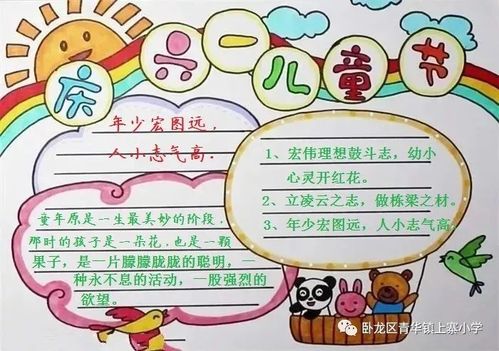 庆兴一儿童节
年少宏图远，
人小志气高.
1、宏伟理想鼓斗志，幼小
心灵开红花。
2、立凌云之志，做栋梁之材。
3、年少宏图远，人小志气高
童年原是一生最美妙的阶段，
那时的孩子是一朵花，也是一颗
果子，是一片朦朦胧胧的聪明，一
种永不息的活动，一股强烈的
欲望。
卧龙区青华镇上寨小学